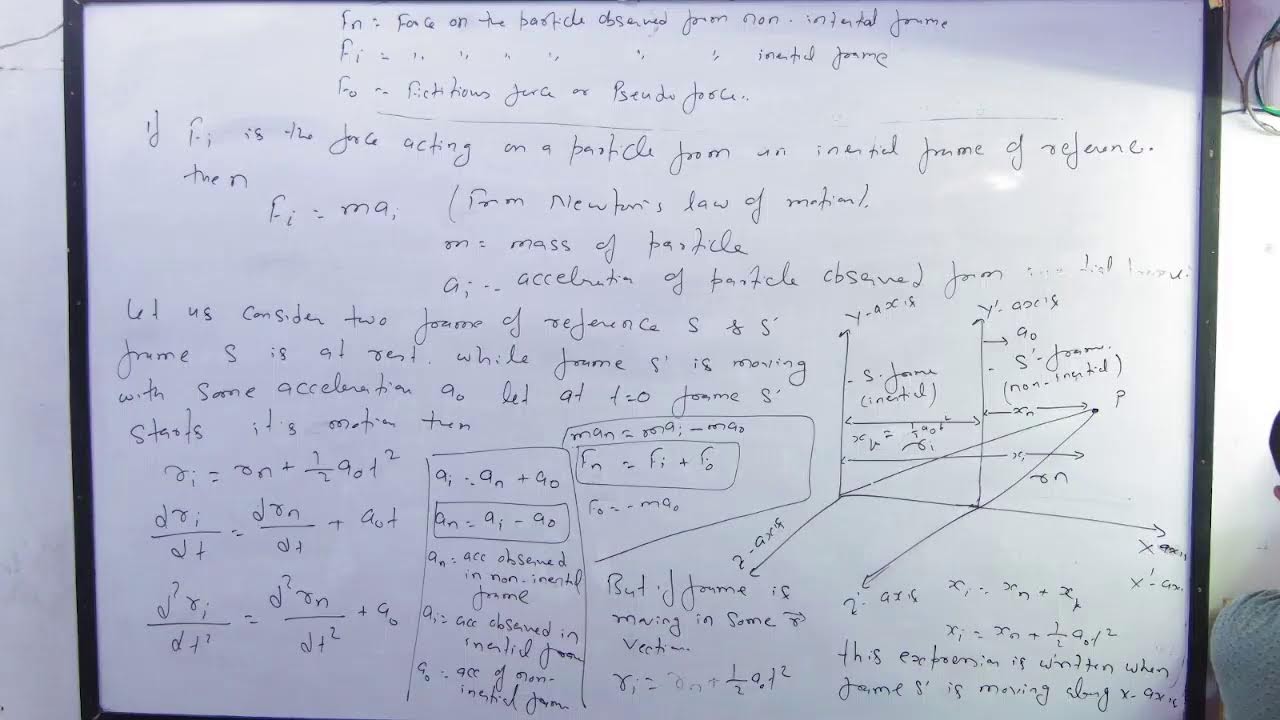 Fn = Force on the particle observed from non-inertial frame
Fi = " " " " " " inertial frame
F0 = Fictitious force or Pseudo force.
if Fi is the force acting on a particle from an inertial frame of reference.
then
Fi = mai (From Newton's law of motion).
m = mass of particle
ai = acceleration of particle observed from
Let us consider two frame of reference S & S'
frame S is at rest. while frame S' is moving
with some acceleration a0 let at t=0 frame S'
starts it's motion then
ri = rn + 1/2 a0t²
dri/dt = drn/dt + a0t
d²ri/dt² = d²rn/dt² + a0
ai = an + a0
an = ai - a0
an = acc observed
in non-inertial
frame
ai = acc observed in
inertial frame
a0 = acc of non-
inertial frame
man = mai - ma0
Fn = Fi + F0
F0 = -ma0
But if frame is
moving in some r⃗
Vection
ri = rn + 1/2 a0t²
Y-axis
Y'-axis
a0
S-frame
(inertial)
S'-frame
(non-inertial)
P
xn
= 1/2 a0t²
ri
xi
rn
Z-axis
Z'-axis
X-axis
X'-ax
xi = xn + xk
xi = xn + 1/2 a0t²
this expression is written when
frame S' is moving along x-axis